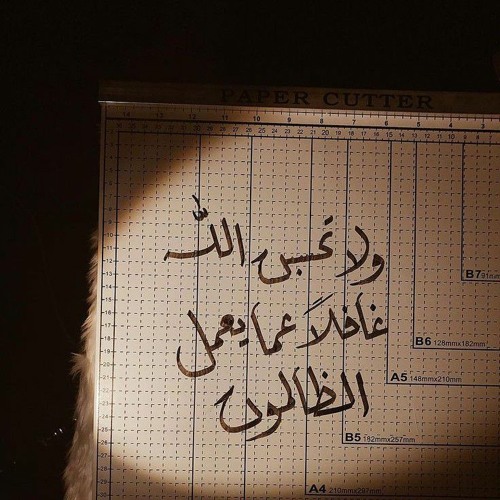 PAPER CUTTER
ولا تحسبن الله
غافلاً عما يعمل
الظالمون
B7
B6 128mmx182mm
A5 148mmx210mm
B5 182mmx257mm
A4 210mmx297mm